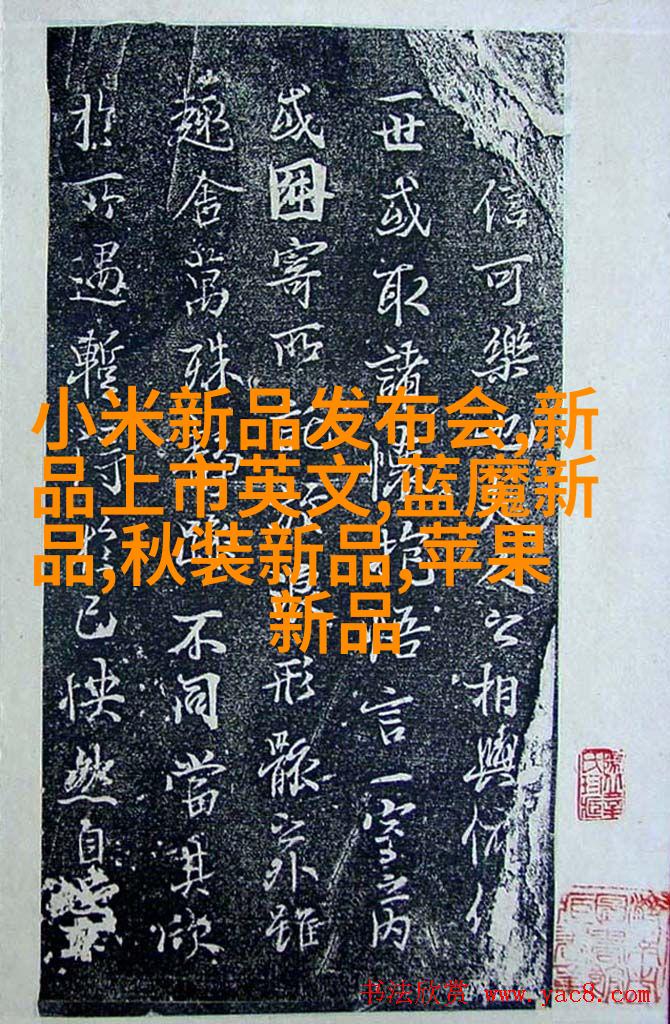 信可樂也夫人之相與俯仰
一世或取諸懷抱悟言一室之內
或因寄所託形骸之外雖
趣舍萬殊躁不同當其欣
於所遇暫得於己怏然自
小米新品发布会,新
品上市英文,蓝魔新
品,秋装新品,苹果
新品
书法欣赏 www.yac8.com